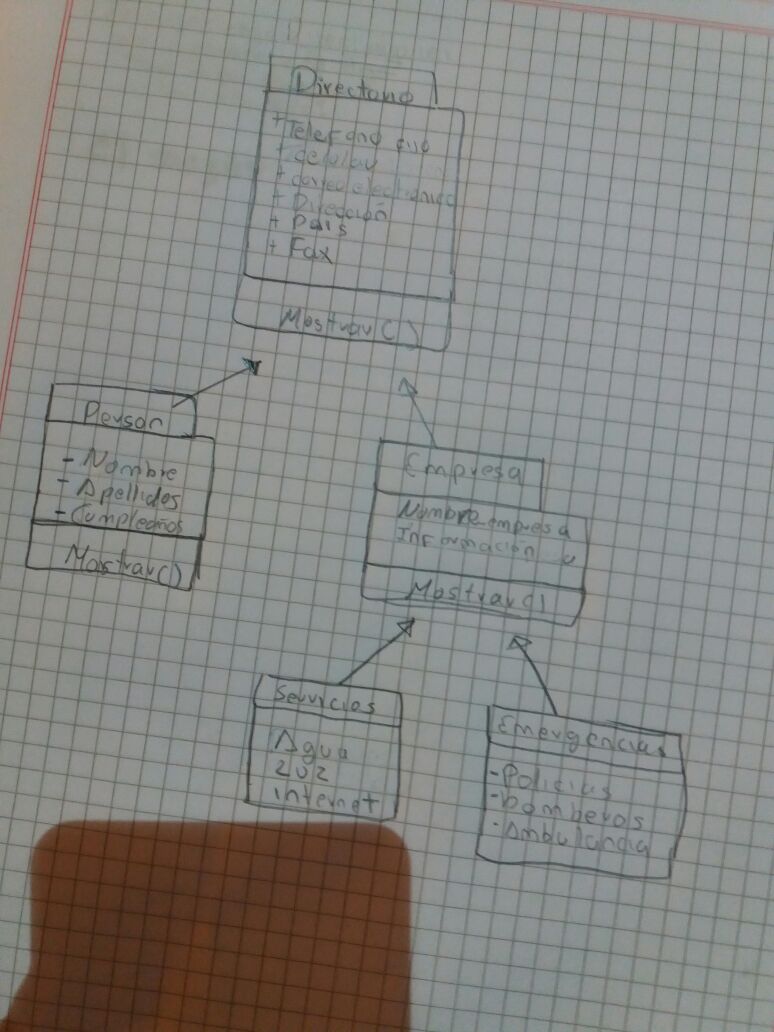 Directorio
+ Telefono fijo
+ celular
+ correo electronico
+ Dirección
+ Pais
+ Fax
Mostrar()
Person
- Nombre
- Apellidos
- Cumpleaños
Mostrar()
Empresa
Nombre empresa
Información
Mostrar()
Servicios
Agua
Luz
internet
Emergencias
- Policias
- bomberos
- Ambulancia